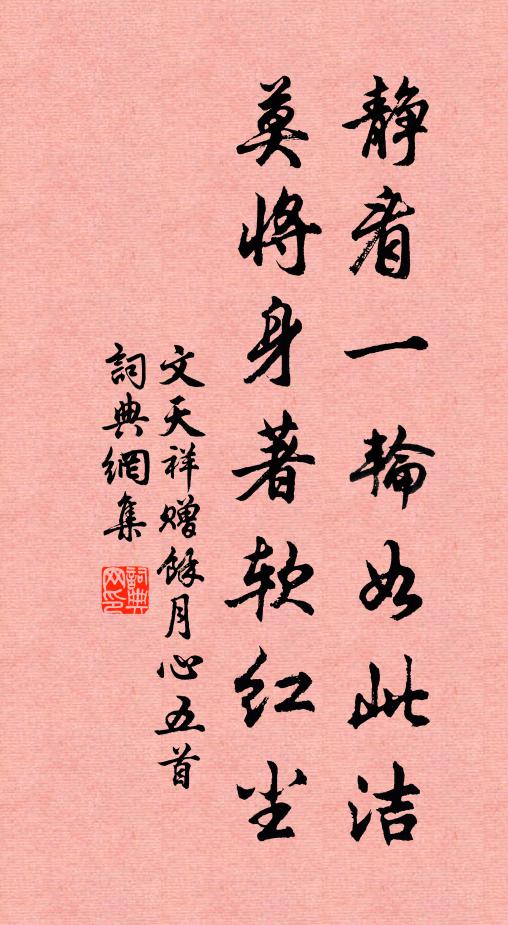 静看一輪如此洁
莫將身著软红尘
文天祥赠馀月心五首
詞典網集
詞典网印